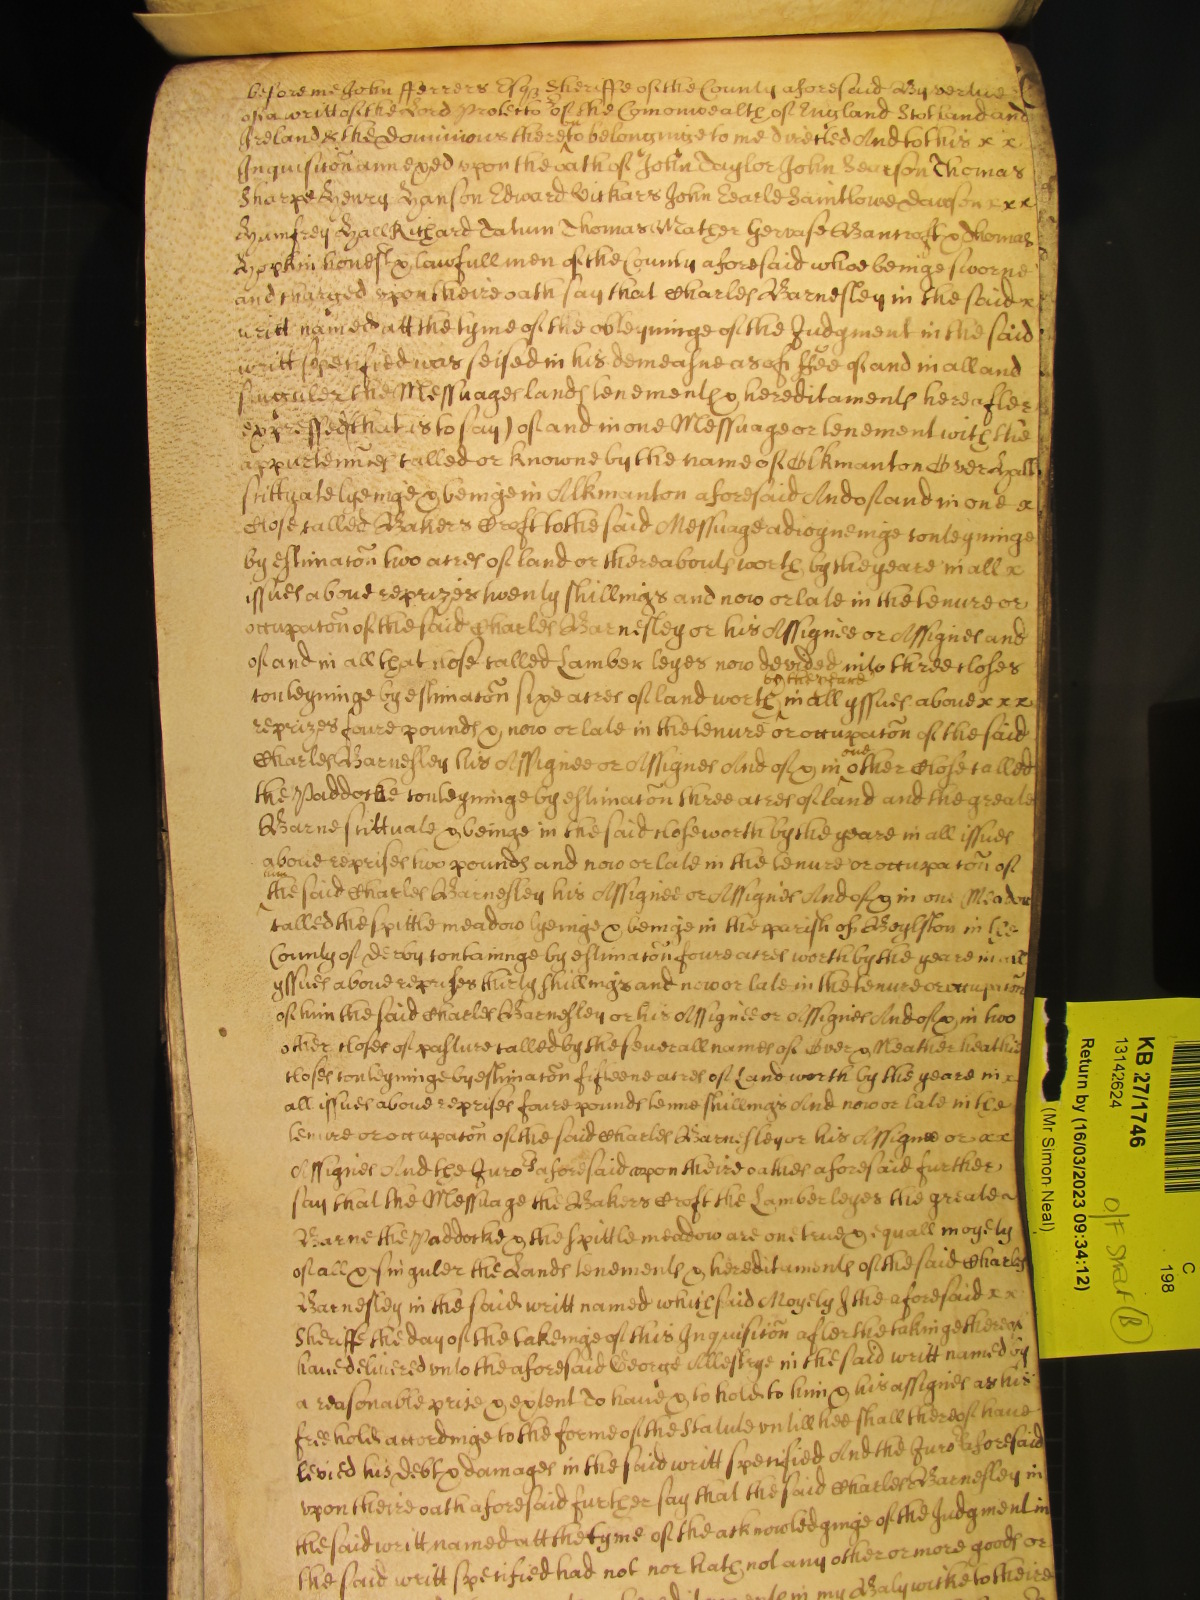 before me John Fferrers Esqr Sheriffe of the County aforesaid By vertue
of a writt of the Lord Protector of the Comonwealth of England Scotland and
Ireland & the Dominions thereto belonginge to me directed And to this x x
Inquisicon annexed upon the oath of John Taylor John Pearson Thomas
Sharpe Henry Hanson Edward Vickars John Earle Saintlowe Dawson x x x
Humfrey Hall Richard Tatum Thomas Mather Gervase Bancroft & Thomas
Hopkin honest & lawfull men of the County aforesaid whoe beinge sworne
and charged upon theire oath say that Charles Barnesley in the said x
writt named att the tyme of the obteyninge of the Judgment in the said
writt specified was seised in his demeasne as of ffee of and in all and
singuler the Messuages lands tenements & hereditaments hereafter
expressed (that is to say) of and in one Messuage or tenement with the
appurtenncs called or knowne by the name of Alkmanton Over Hall
scittuate lyeinge & beinge in Alkmanton aforesaid And of and in one x
Close called Bakers Croft to the said Messuage adioyneinge conteyninge
by estimacon two acres of land or thereabouts worth by the yeare in all x
issues aboue reprizes twenty shillings and now or late in the tenure or
occupacon of the said Charles Barnesley or his Assignee or Assignes and
of and in all that close called Lamber leyes now devided into three closes
conteyninge by estimacon sixe acres of land worth by the yeare in all yssues aboue x x x
reprizes foure pounds & now or late in the tenure or occupacon of the said
Charles Barnesley his Assignee or Assignes And of & in one other Close called
the Paddocke conteyninge by estimacon three acres of land and the greate
Barne scittuate & beinge in the said close worth by the yeare in all issues
aboue reprises two pounds and now or late in the tenure or occupacon of
him the said Charles Barnesley his Assignee or Assignes And of & in one Meadow
called the spittle meadow lyeinge & beinge in the parish of Boylston in the
County of Derby containinge by estimacon foure acres worth by the yeare in all
yssues aboue reprises thirty shillings and now or late in the tenure or occupacon
of him the said Charles Barnesley or his Assignee or Assignes And of & in two
other closes of pasture called by the seuerall names of Over & Neather heathie
closes conteyninge by estimacon fifteene acres of Land worth by the yeare in x
all issues aboue reprises foure pounds tenne shillings And now or late in the
tenure or occupacon of the said Charles Barnesley or his Assignee or x x
Assignes And the Juror's aforesaid upon theire oathes aforesaid further
say that the Messuage the Bakers Croft the Lamber leyes the greate
Barne the Paddocke & the spittle meadow are one true & equall moyety
of all & singuler the Lands tenements & hereditaments of the said Charles
Barnesley in the said writt named which said Moyety I the aforesaid x x
Sheriffe the day of the takeinge of this Inquisicon after the takinge thereof
haue deliuered vnto the aforesaid George Allestrye in the said writt named by
a reasonable price & extent To haue & to hold to him & his assignes as his
freehold accordinge to the forme of the Statute vntill hee shall thereof haue
levied his debt & damages in the said writt specified And the Juror's aforesaid
vpon theire oath aforesaid further say that the said Charles Barnesley in
the said writt named att the tyme of the acknowledginge of the Judgment in
the said writt specified had not nor hath not any other or more goods or
in my Balywicke to theire
KB 27/1746
13142624
Return by (16/03/2023 09:34:12)
(Mr Simon Neal)
C
198
O/F Shelf (B)